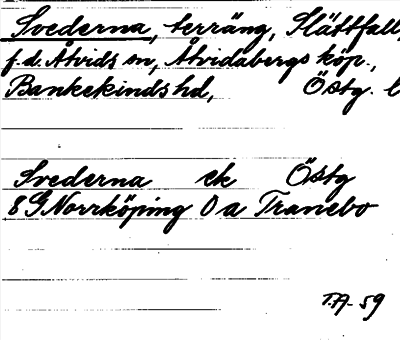 Svederna, terräng, Slättfall,
f.d. Åtvids sn, Åtvidabergs köp.,
Bankekinds hd, Östg. l
Svederna ek Östg
8 G Norrköping 0 a Tranebo
T.A. 59